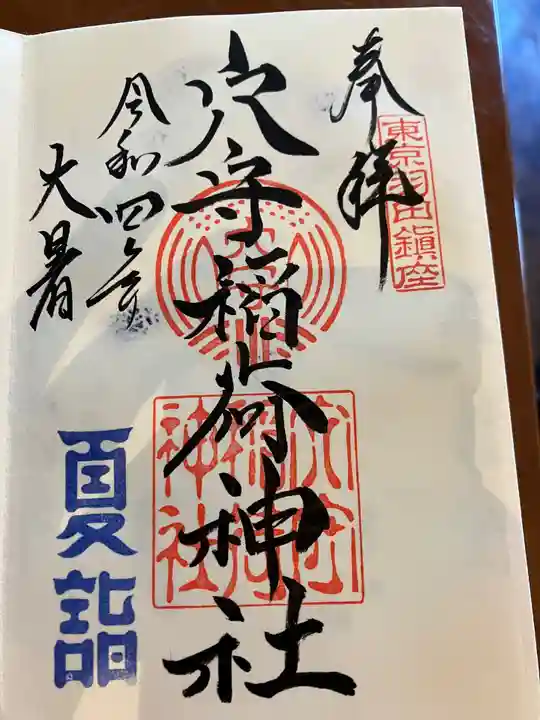 奉拝
東京羽田鎮座
穴守稲荷神社
穴守
稲荷
神社
令和四年
大暑
夏詣